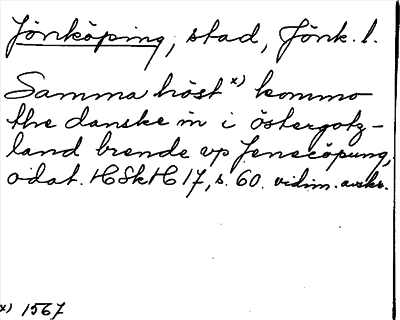 Jönköping, stad, Jönk. l.
Samma höst x) kommo
the danske in i östergotz-
land brende vp Jenecöpung,
odat. HSkH 17, s. 60. vidim. avskr.
x) 1567